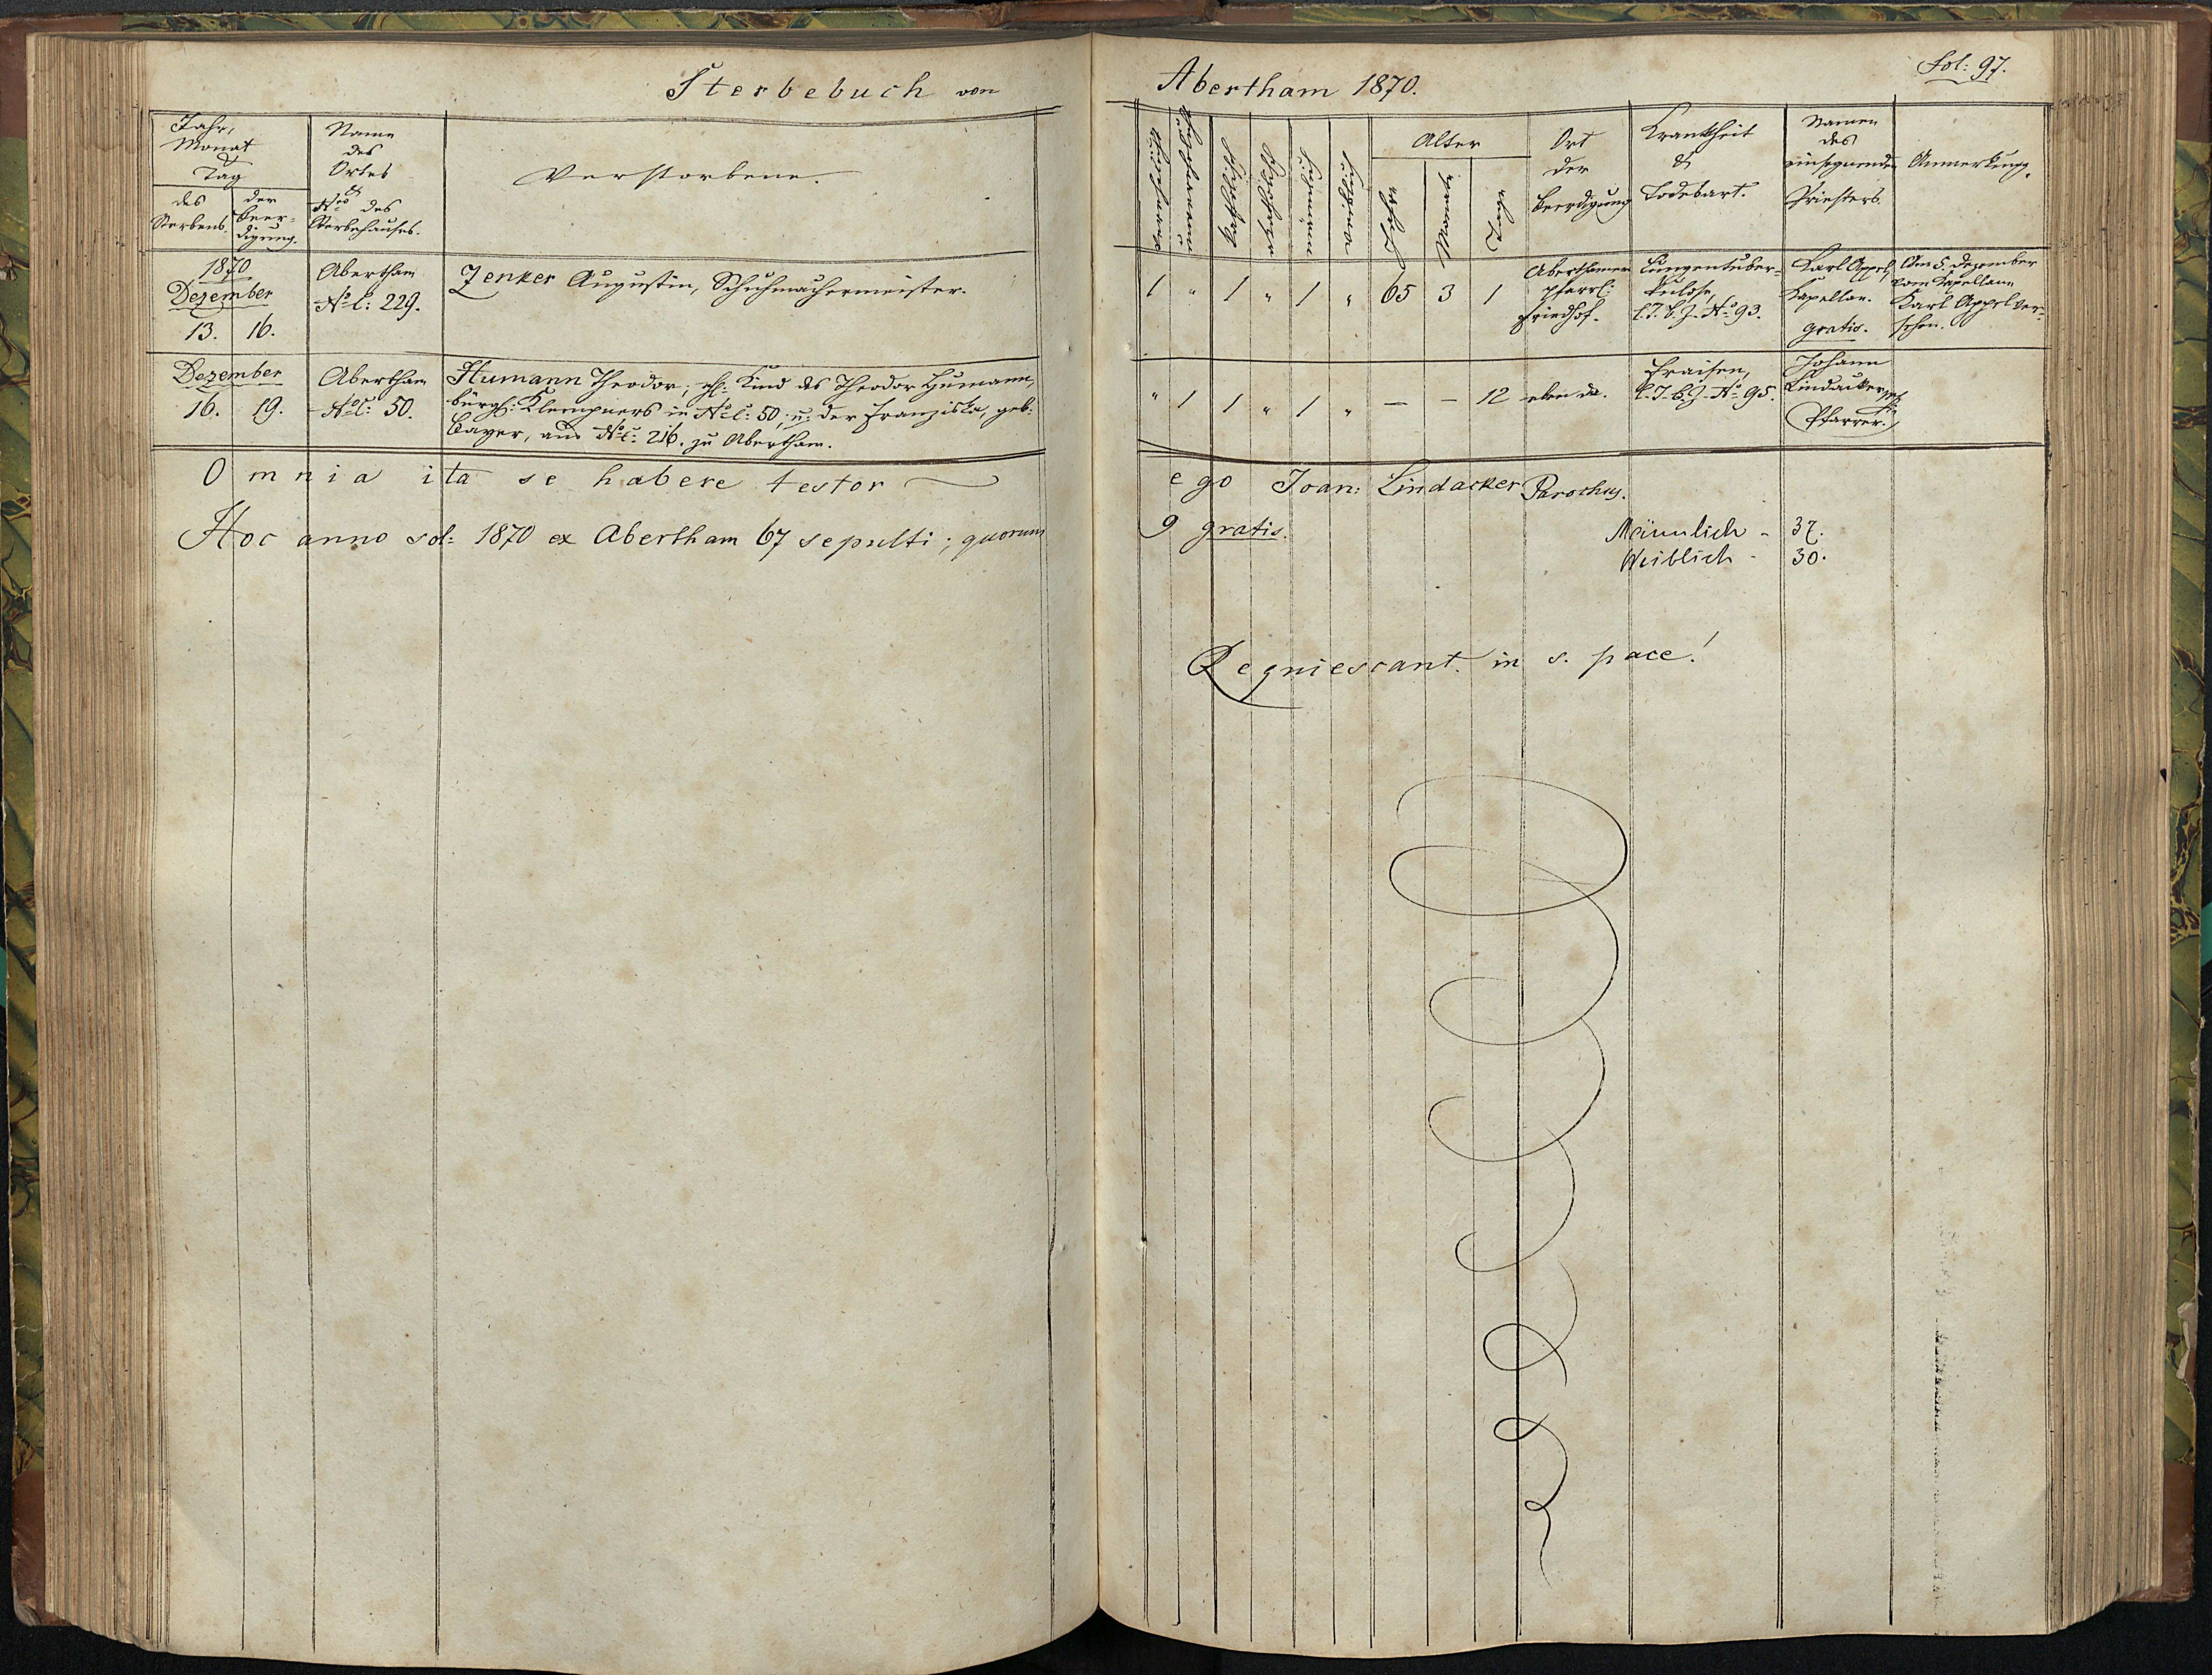 Sterbebuch von
Jahr,
Monat
&
Tag
des
Sterbens.
der
Beer-
digung.
Name
des
Ortes
&
Nro des
Sterbehauses.
Verstorbene.
1870
Dezember
13. 16.
Abertham
No C: 229.
Zenker Augustin, Schuhmachermeister.
Dezember
16. 19.
Abertham
No C: 50.
Humann Theodor, ehl: Kind des Theodor Humann,
bürgl: Klempners in No C: 50, u: der Franziska, geb:
Bayer, aus No C: 216. zu Abertham.
Omnia ita se habere testor
Hoc anno sol: 1870 ex Abertham 67 sepulti; quorum
Abertham 1870.
Fol: 97.
Katholisch
Männlich
Weiblich
Alter
Jahre
Monate
Tage
Ort
der
Beerdigung
Krankheit
&
Todesart.
Namen
des
einsegnenden
Priesters.
Anmerkung.
1 " 1 " 1 " 65 3 1
Aberthamer
pfarrl:
Friedhof.
Lungentuber-
kulose,
l. T. B. Z. No 93.
Karl Appel,
Kapellan.
gratis.
Am 5. Dezember
vom Kapellane
Karl Appel ver-
sehen.
" 1 1 " 1 " — — 12
eben da.
Fraisen,
l. T. B. Z. No 95.
Johann
Lindacker,
Pfarrer.
ego Joan: Lindacker Parochus.
9 gratis.
Männlich - 37.
Weiblich - 30.
Requiescant in s. pace!